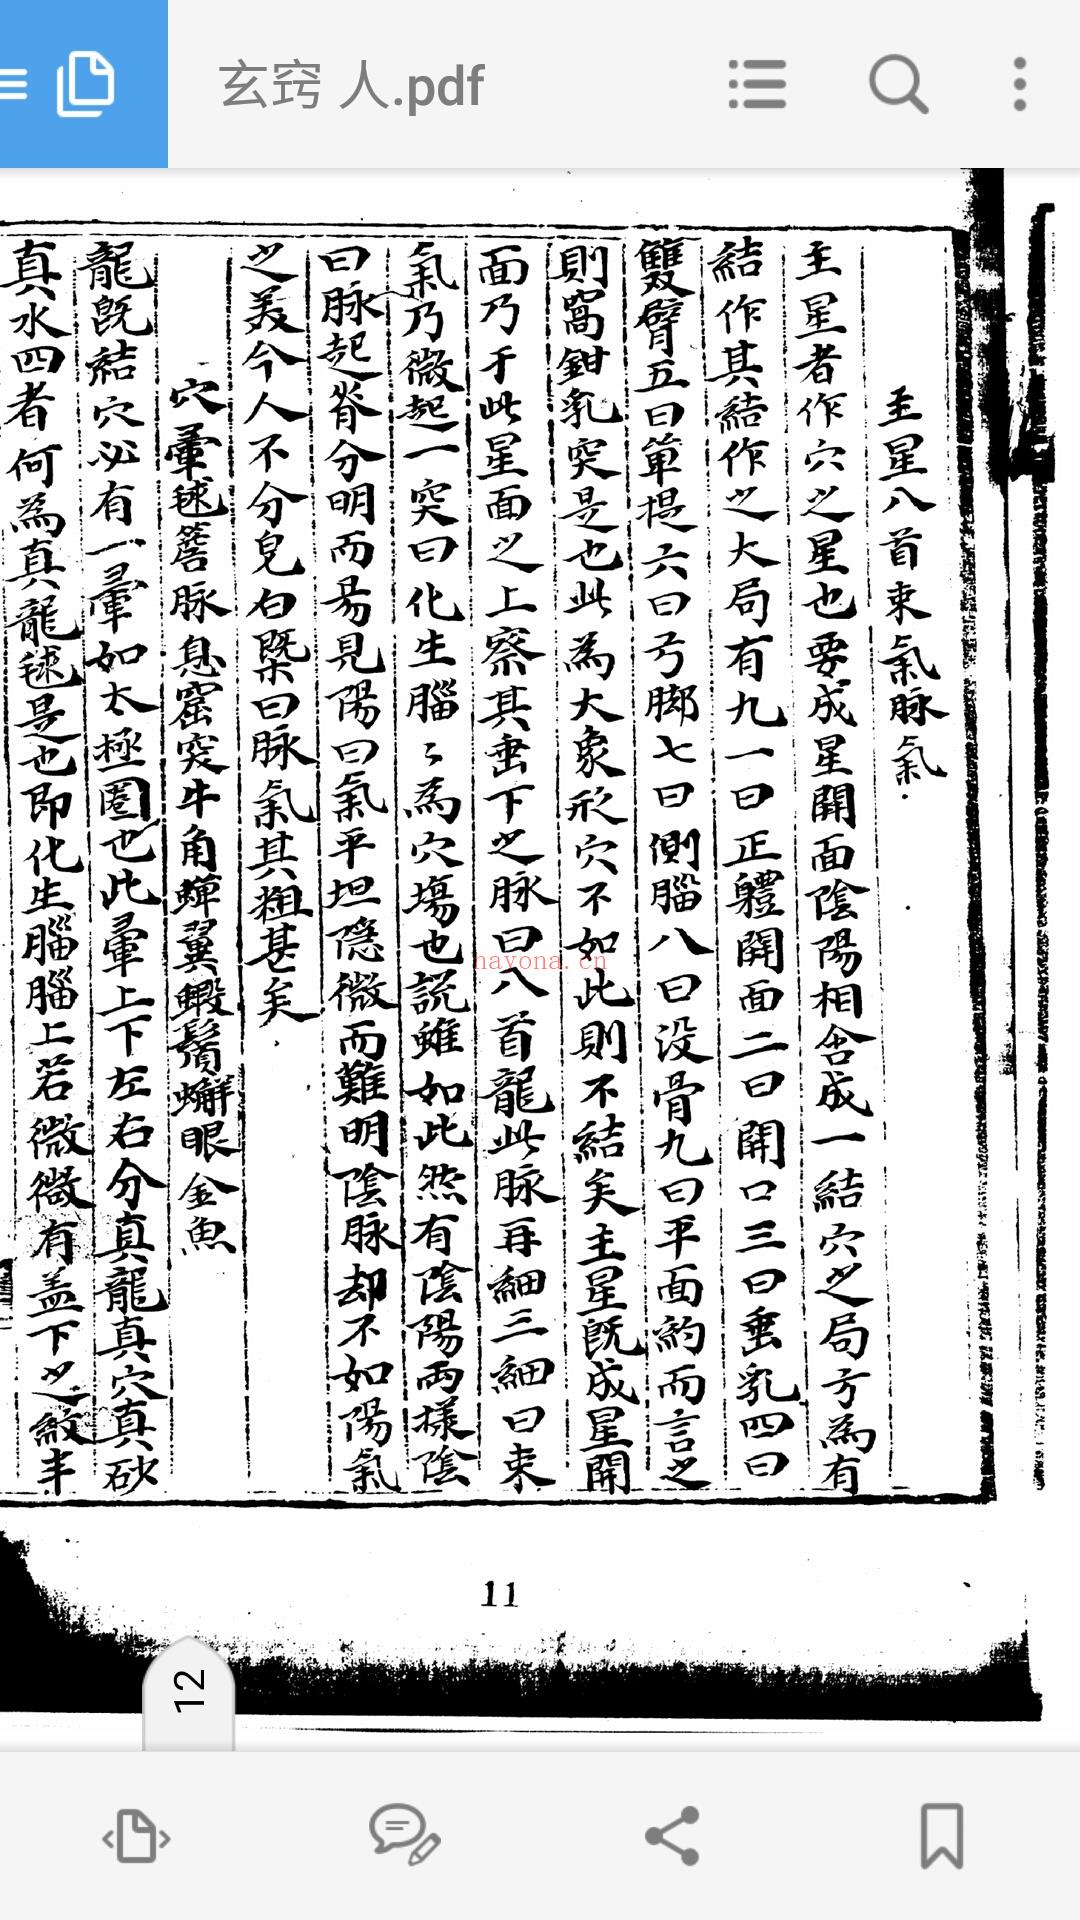 玄窍 人.pdf
主星八首束氣脉氣
主星者作穴之星也要成星開面陰陽相含成一結穴之局方為有
結作其結作之大局有九一曰正軆開面二曰開口三曰垂乳四曰
雙臂五曰單提六曰弓脚七曰側腦八曰没骨九曰平面約而言之
則窩鉗乳突是也此為大象形穴不如此則不結矣主星既成星開
面乃于此星面之上察其垂下之脉曰八首龍此脉再細三細曰束
氣乃微起一突曰化生腦〻為穴塲也説雖如此然有陰陽兩樣陰
曰脉起脊分明而易見陽曰氣平坦隱微而難明陰脉却不如陽氣
之美今人不分皂白槩曰脉氣其粗甚矣
穴暈毬簷脉息窟突牛角蟬翼蝦鬚蠏眼金魚
龍既結穴必有一暈如太極圏也此暈上下左右分真龍真穴真砂
真水四者何為真龍毬是也即化生腦腦上若微微有盖下之紋丰
hayona.cn
11
12